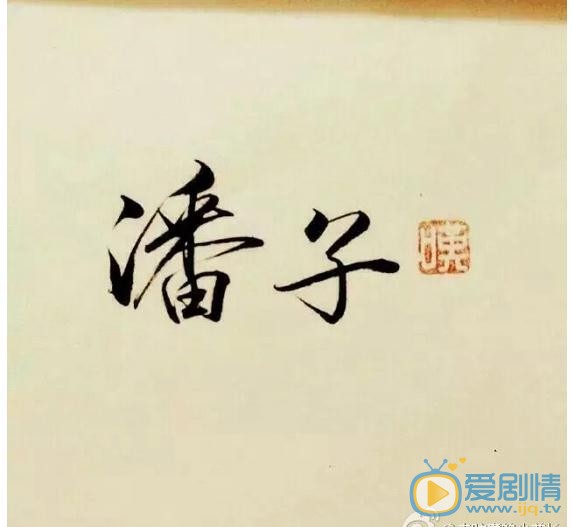 潘子
爱剧情
www.ijq.tv